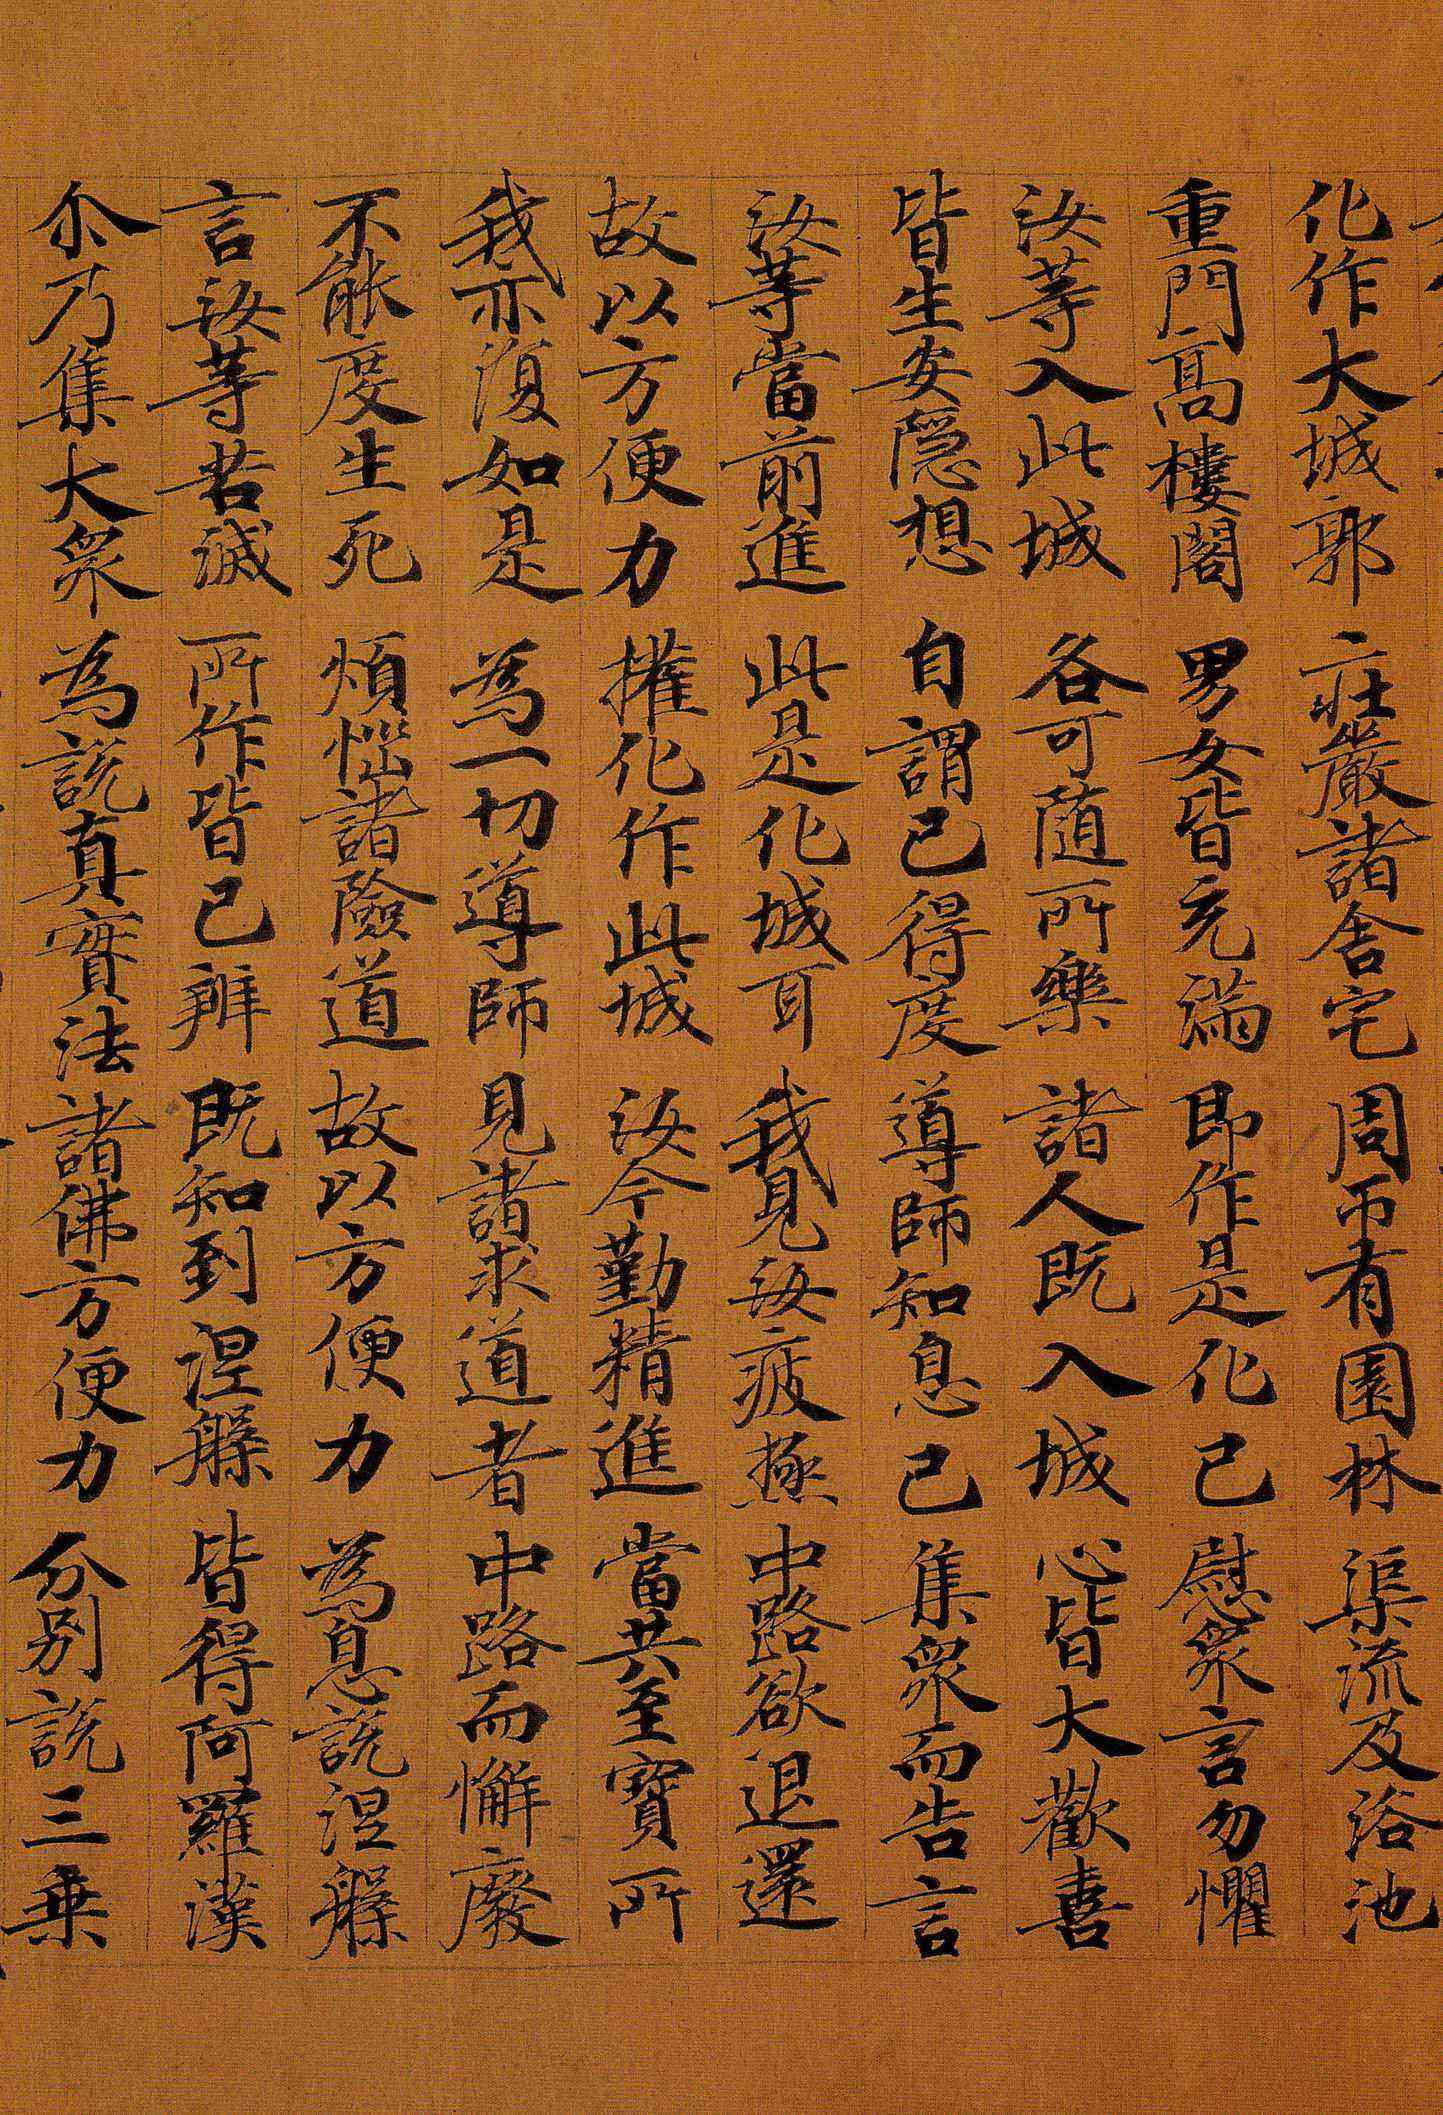 化作大城郭 莊嚴諸舍宅 周帀有園林 渠流及浴池
重門高樓閣 男女皆充滿 即作是化已 慰衆言勿懼
汝等入此城 各可随所樂 諸人既入城 心皆大歡喜
皆生安隱想 自謂已得度 導師知息已 集衆而告言
汝等當前進 此是化城耳 我見汝疲極 中路欲退還
故以方便力 權化作此城 汝今勤精進 當共至寶所
我亦復如是 為一切導師 見諸求道者 中路而懈廢
不能度生死 煩惱諸險道 故以方便力 為息説涅槃
言汝等若滅 所作皆已辨 既知到涅槃 皆得阿羅漢
尒乃集大衆 為説真實法 諸佛方便力 分别説三乗